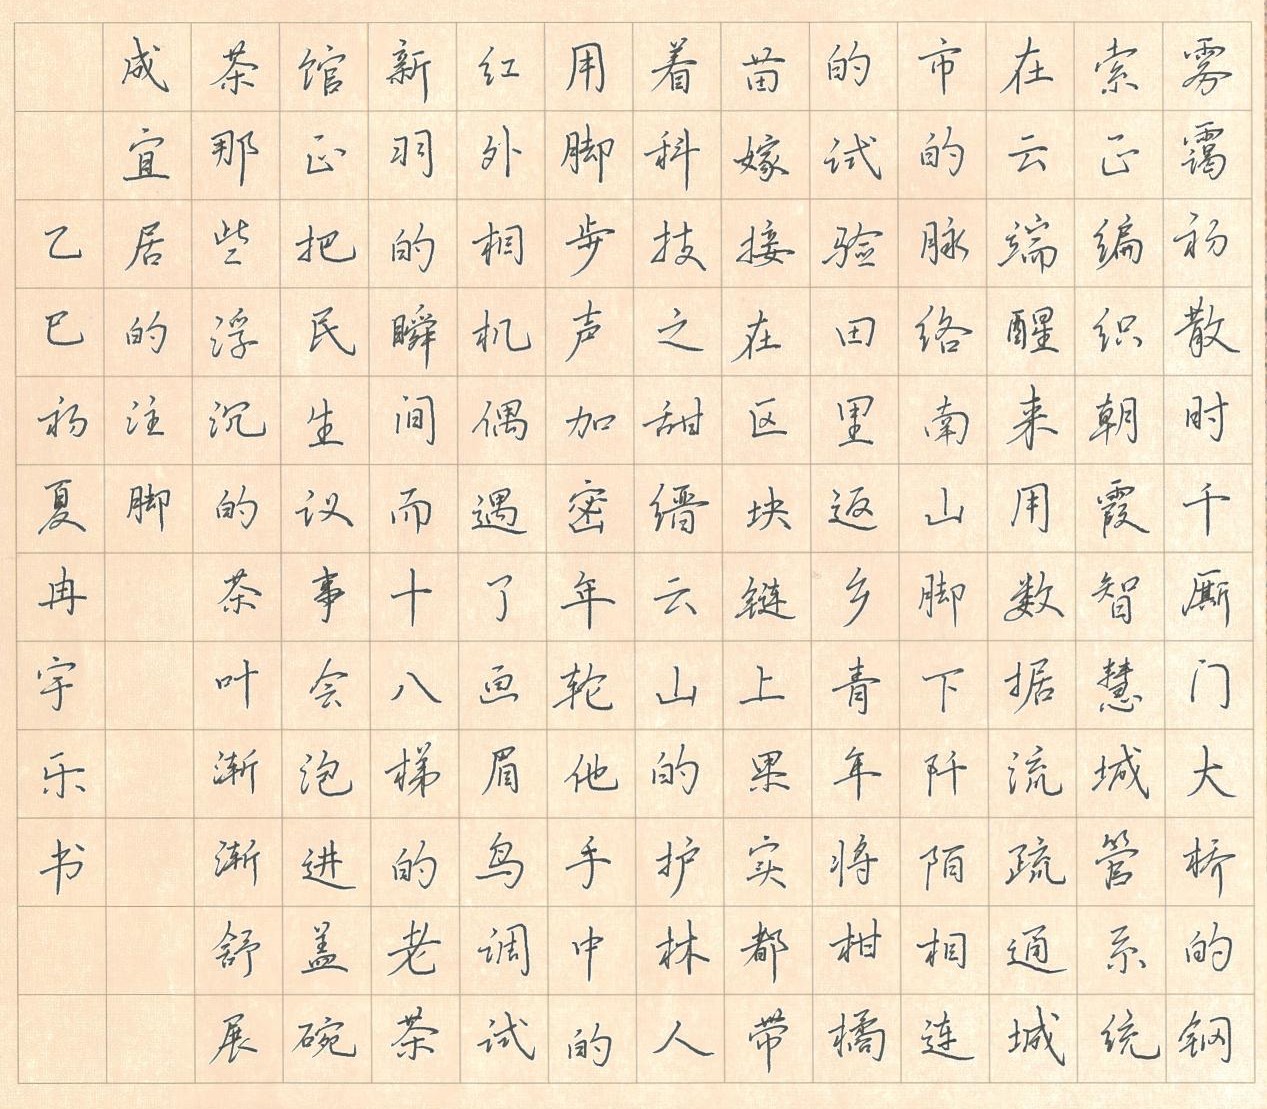 雾霭初散时千厮门大桥的钢
索正编织朝霞智慧城管系统
在云端醒来用数据流疏通城
市的脉络南山脚下阡陌相连
的试验田里返乡青年将柑橘
苗嫁接在区块链上果实都带
着科技之甜缙云山的护林人
用脚步声加密年轮他手中的
红外相机偶遇了画眉鸟调试
新羽的瞬间而十八梯的老茶
馆正把民生议事会泡进盖碗
茶那些浮沉的茶叶渐渐舒展
成宜居的注脚
乙巳初夏冉宇乐书